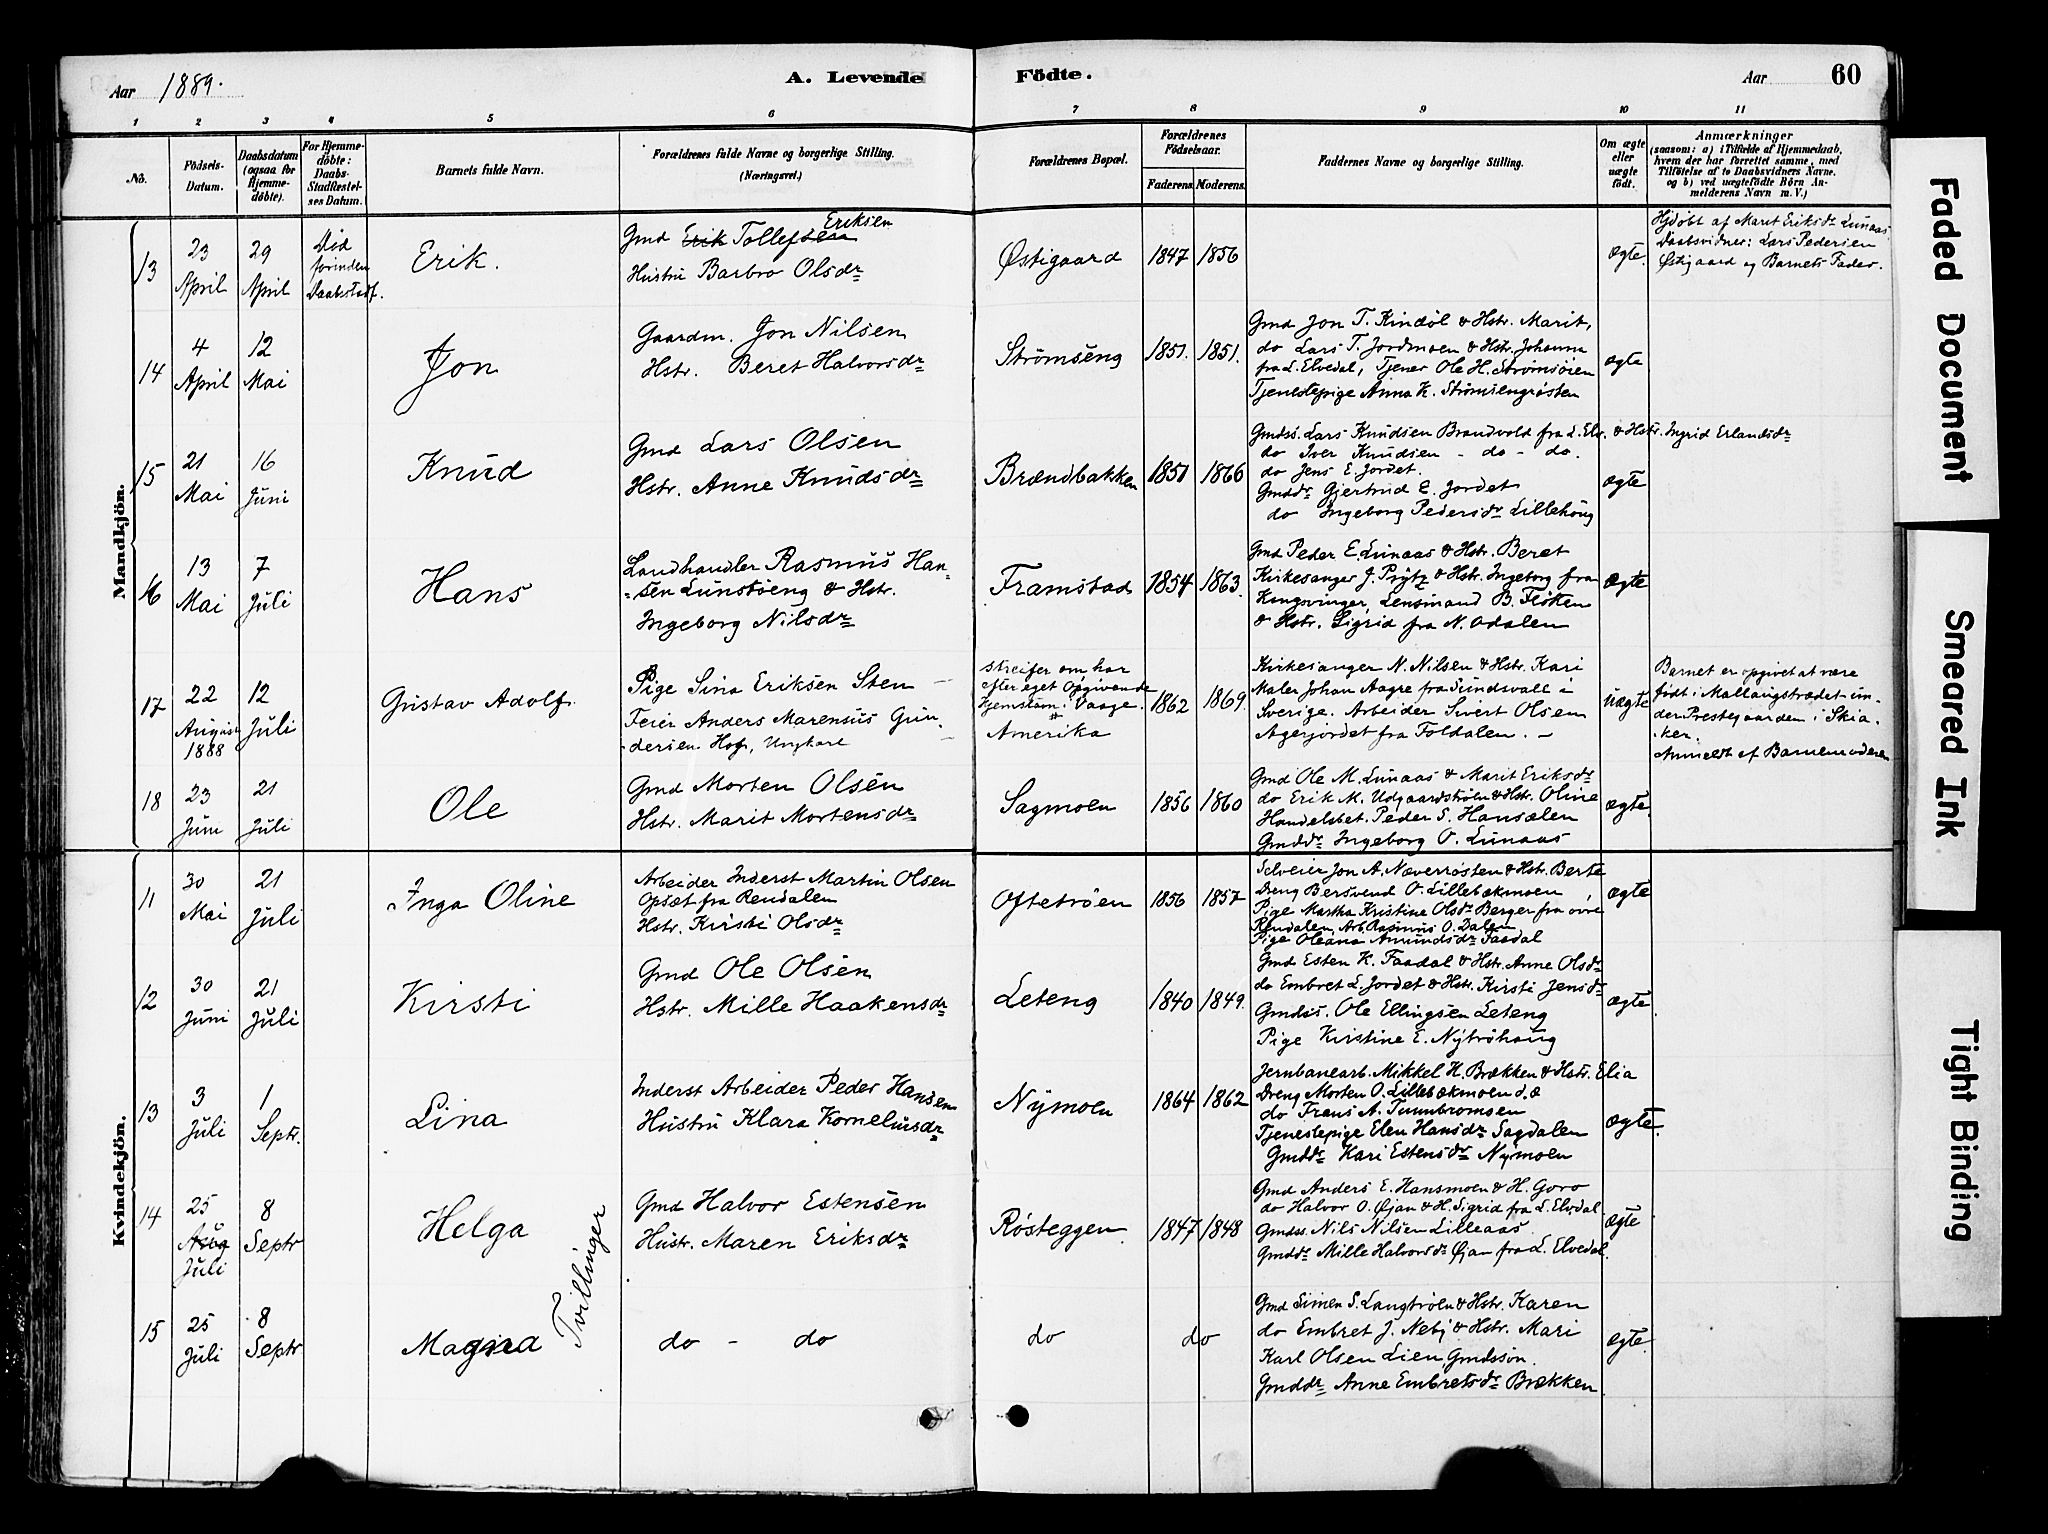 Aar 1889.
A. Levende Födte.
Aar 60
1 2 3 4 5 6 7 8 9 10 11
No.
Födsels-Datum.
Daabsdatum (ogsaa for Hjemme-döbte).
For Hjemme-döbte: Daabs-Stadfæstel-ses Datum.
Barnets fulde Navn.
Forældrenes fulde Navne og borgerlige Stilling.
(Næringsvei.)
Forældrenes Bopæl.
Forældrenes Födselsaar.
Faderens. Moderens.
Faddernes Navne og borgerlige Stilling.
Om ægte eller uægte födt.
Anmærkninger
(saasom: a) i Tilfælde af Hjemmedaab,
hvem der har forrettet samme, med
Tilföielse af to Daabsvidners Navne,
og b) ved uægtefödte Börn An-
melderens Navn m. V.)
Mandkjön.
13
23 April
29 April
Død forinden Daabstadf.
Erik.
Gmd Erik Tollefsen Eriksen
Hustru Barbro Olsdr
Østigaard
1847 1856
ægte.
Hjdøbt af Marit Eriksdr Lunaas
Daabsvidner: Lars Pedersen
Østigaard og Barnets Fader.
14
4 April
12 Mai
Jon
Gaardm. Jon Nilsen
Hstr. Beret Halvorsdr
Strømseng
1851. 1851.
Gmd Jon T. Kindøl & Hstr. Marit,
do Lars T. Jordmoen & Hstr. Johanna
fra L. Elvedal, Tjener Ole H. Strømsøien
Tjenestepige Anna K. Strømsengrøsten
ægte
15
21 Mai
16 Juni
Knud
Gmd Lars Olsen
Hstr. Anne Knudsdr
Brændbakken
1851 1866
Gmdss. Lars Knudsen Brandvold fra L. Elv. & Hstr. Ingrid Erlandsdr
do Iver Knudsen - do - do.
do Jens E. Jordet.
Gmddr Gjertrud E. Jordet
do Ingeborg Pedersdr Lillehaug
ægte
16
13 Mai
7 Juli
Hans
Landhandler Rasmus Han-
sen Lunstøeng & Hstr.
Ingeborg Nilsdr
Framstad
1854 1863.
Gmd Peder E. Lunaas & Hstr. Beret
Kirkesanger J. Prytz & Hstr. Ingeborg fra
Kongsvinger, Lensmand B. Fløten
& Hstr. Sigrid fra N. Odalen
ægte
17
22 August 1888
12 Juli
Gustav Adolf
Pige Sina Eriksen Sten
Feier Anders Marensus Gun-
dersen Hof, Ungkarl
streifer om har
efter eget Opgivende
Hjemstavn i Vaage.
Amerika
1862 1869
Kirkesanger N. Nilsen & Hstr. Kari
Maler Johan Aagre fra Sundsvall i
Sverige. Arbeider Sivert Olsen
Agerjordet fra Foldalen.
uægte
Barnet er opgivet at være
født i Mallaugstrædet un-
der Prestegaarden i Skia-
ker.
Anmeldt af Barnemoderen
18
23 Juni
21 Juli
Ole
Gmd Morten Olsen
Hstr. Marit Mortensdr
Sagmoen
1856 1860
Gmd Ole M. Lunaas & Marit Eriksdr
do Erik M. Udgaardstrøen & Hstr. Oline
Handelsbet. Peder S. Hansælen
Gmddr Ingeborg O. Lunaas
ægte.
Kvindekjön.
11
30 Mai
21 Juli
Inga Oline
Arbeider Inderst Martin Olsen
Opsæt fra Rendalen
Hstr. Kirsti Olsdr
Oftetrøen
1856 1857
Selveier Jon A. Næverrøsten & Hstr. Berte
Dreng Bersvend O. Lillebækmoen
Pige Martha Kristine Olsdr Berger fra øvre
Rendalen, Arb. Rasmus O. Dalen
Pige Oleana Amundsdr Faadal
ægte
12
30 Juni
21 Juli
Kirsti
Gmd Ole Olsen
Hstr. Mille Haakensdr
Leteng
1840 1849.
Gmd Esten K. Faadal & Hstr. Anne Olsdr
do Embret L. Jordet & Hstr. Kirsti Jensdr
Gmdss. Ole Ellingsen Leteng
Pige Kirstine E. Nytrøhaug
ægte
13
3 Juli
1 Septr.
Lina
Inderst Arbeider Peder Hansen
Hustru Klara Korneliusdr
Nymoen
1864 1862
Jernbanearb. Mikkel H. Brækken & Hstr. Elia
Dreng Morten O. Lillebækmoen d. æ
do Frans A. Tunnbromoen
Tjenestepige Elen Hansdr Sagdalen
Gmddr Kari Estensdr Nymoen
ægte.
14
25 Aug Juli
8 Septr
Helga
Tvillinger
Gmd Halvor Estensen
Hustr. Maren Eriksdr
Røsteggen
1847 1848
Gmd Anders E. Hansmoen & H. Goro
do Halvor O. Øjan & H. Sigrid fra L. Elvdal
Gmdss. Nils Nilsen Lilleaas
Gmddr Mille Halvorsdr Øjan fra L. Elvedal
ægte
15
25 Juli
8 Septr
Magna
do - do
do
do
Gmd Simen S. Langtrøen & Hstr. Karen
do Embret J. Neby & Hstr. Mari
Karl Olsen Lien Gmdssøn.
Gmddr Anne Embretsdr Brækken
ægte.
Faded Document
Smeared Ink
Tight Binding